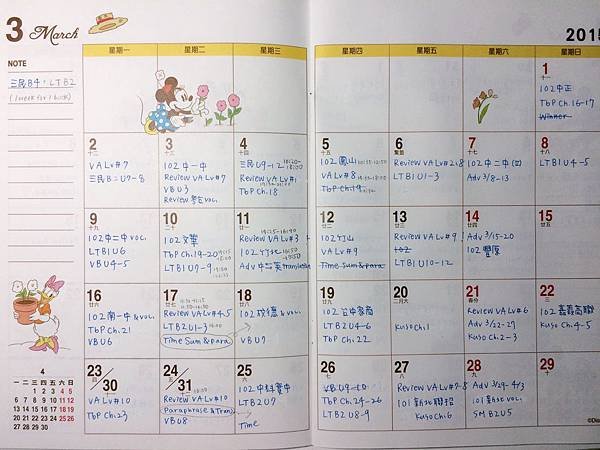 3 March
2015
NOTE
三民B4、LTB2
(1 week for 1 book)
星期一 星期二 星期三 星期四 星期五 星期六 星期日
1
十一
102中正
TbP Ch.16-17
Winner
2
十二
VA Lv#7
三民B2U7-8
3
十三
102中一中
Review VA Lv#7
VBU3
4
十四
三民U9-12
Review VA Lv#1
TbP Ch.18
5
十五
102圓山
VA Lv#8
TbP Ch.19
6
驚蟄
Review VA Lv#2,8
LTB1U1-3
7
十七
102中二中
Adv 3/8-13
8
十八
LTB1U4-5
9
十九
102中二中voc.
LTB1U6
VBU4-5
10
二十
102文華
TbP Ch.19-20
LTB1U7-9
11
廿一
19:25-19:50
Review VA Lv#3
102竹北
Adv 中翻英translation
12
廿二
102竹山
VA Lv#9
Time Sum&para
13
廿三
Review VA Lv#9
LTB1U10-12
14
廿四
Adv 3/15-20
102豐原
15
廿五
16
廿六
102南一中&voc.
TbP Ch.21
VBU6
17
廿七
Review VA Lv#4,5
LTB2U1-3
Time Sum&para
18
廿八
102政德&voc.
VBU7
19
廿九
102台中家商
LTB2U4-6
TbP Ch.22
20
二月大
Kuso Ch.1
21
春分
Review VA Lv#6
Adv 3/22-27
Kuso Ch.2-3
22
初三
102嘉義高職
Kuso Ch.4-5
23
30
十一
VA Lv#10
TbP Ch.23
24
31
十二
Review VA Lv#10
Paraphrase&Tran
VBU8
25
初六
LTB2U7
Time
26
初七
VBU9-10
TbP Ch.24-26
LTB2U8-9
27
初八
Review VA Lv#7-8
101新北聯招
Kuso Ch.6
28
初九
Adv 3/29-4/3
101新北voc.
SMB2U5
29
初十
4
一 二 三 四 五 六 日
1 2 3 4 5
6 7 8 9 10 11 12
13 14 15 16 17 18 19
20 21 22 23 24 25 26
27 28 29 30
©Dis